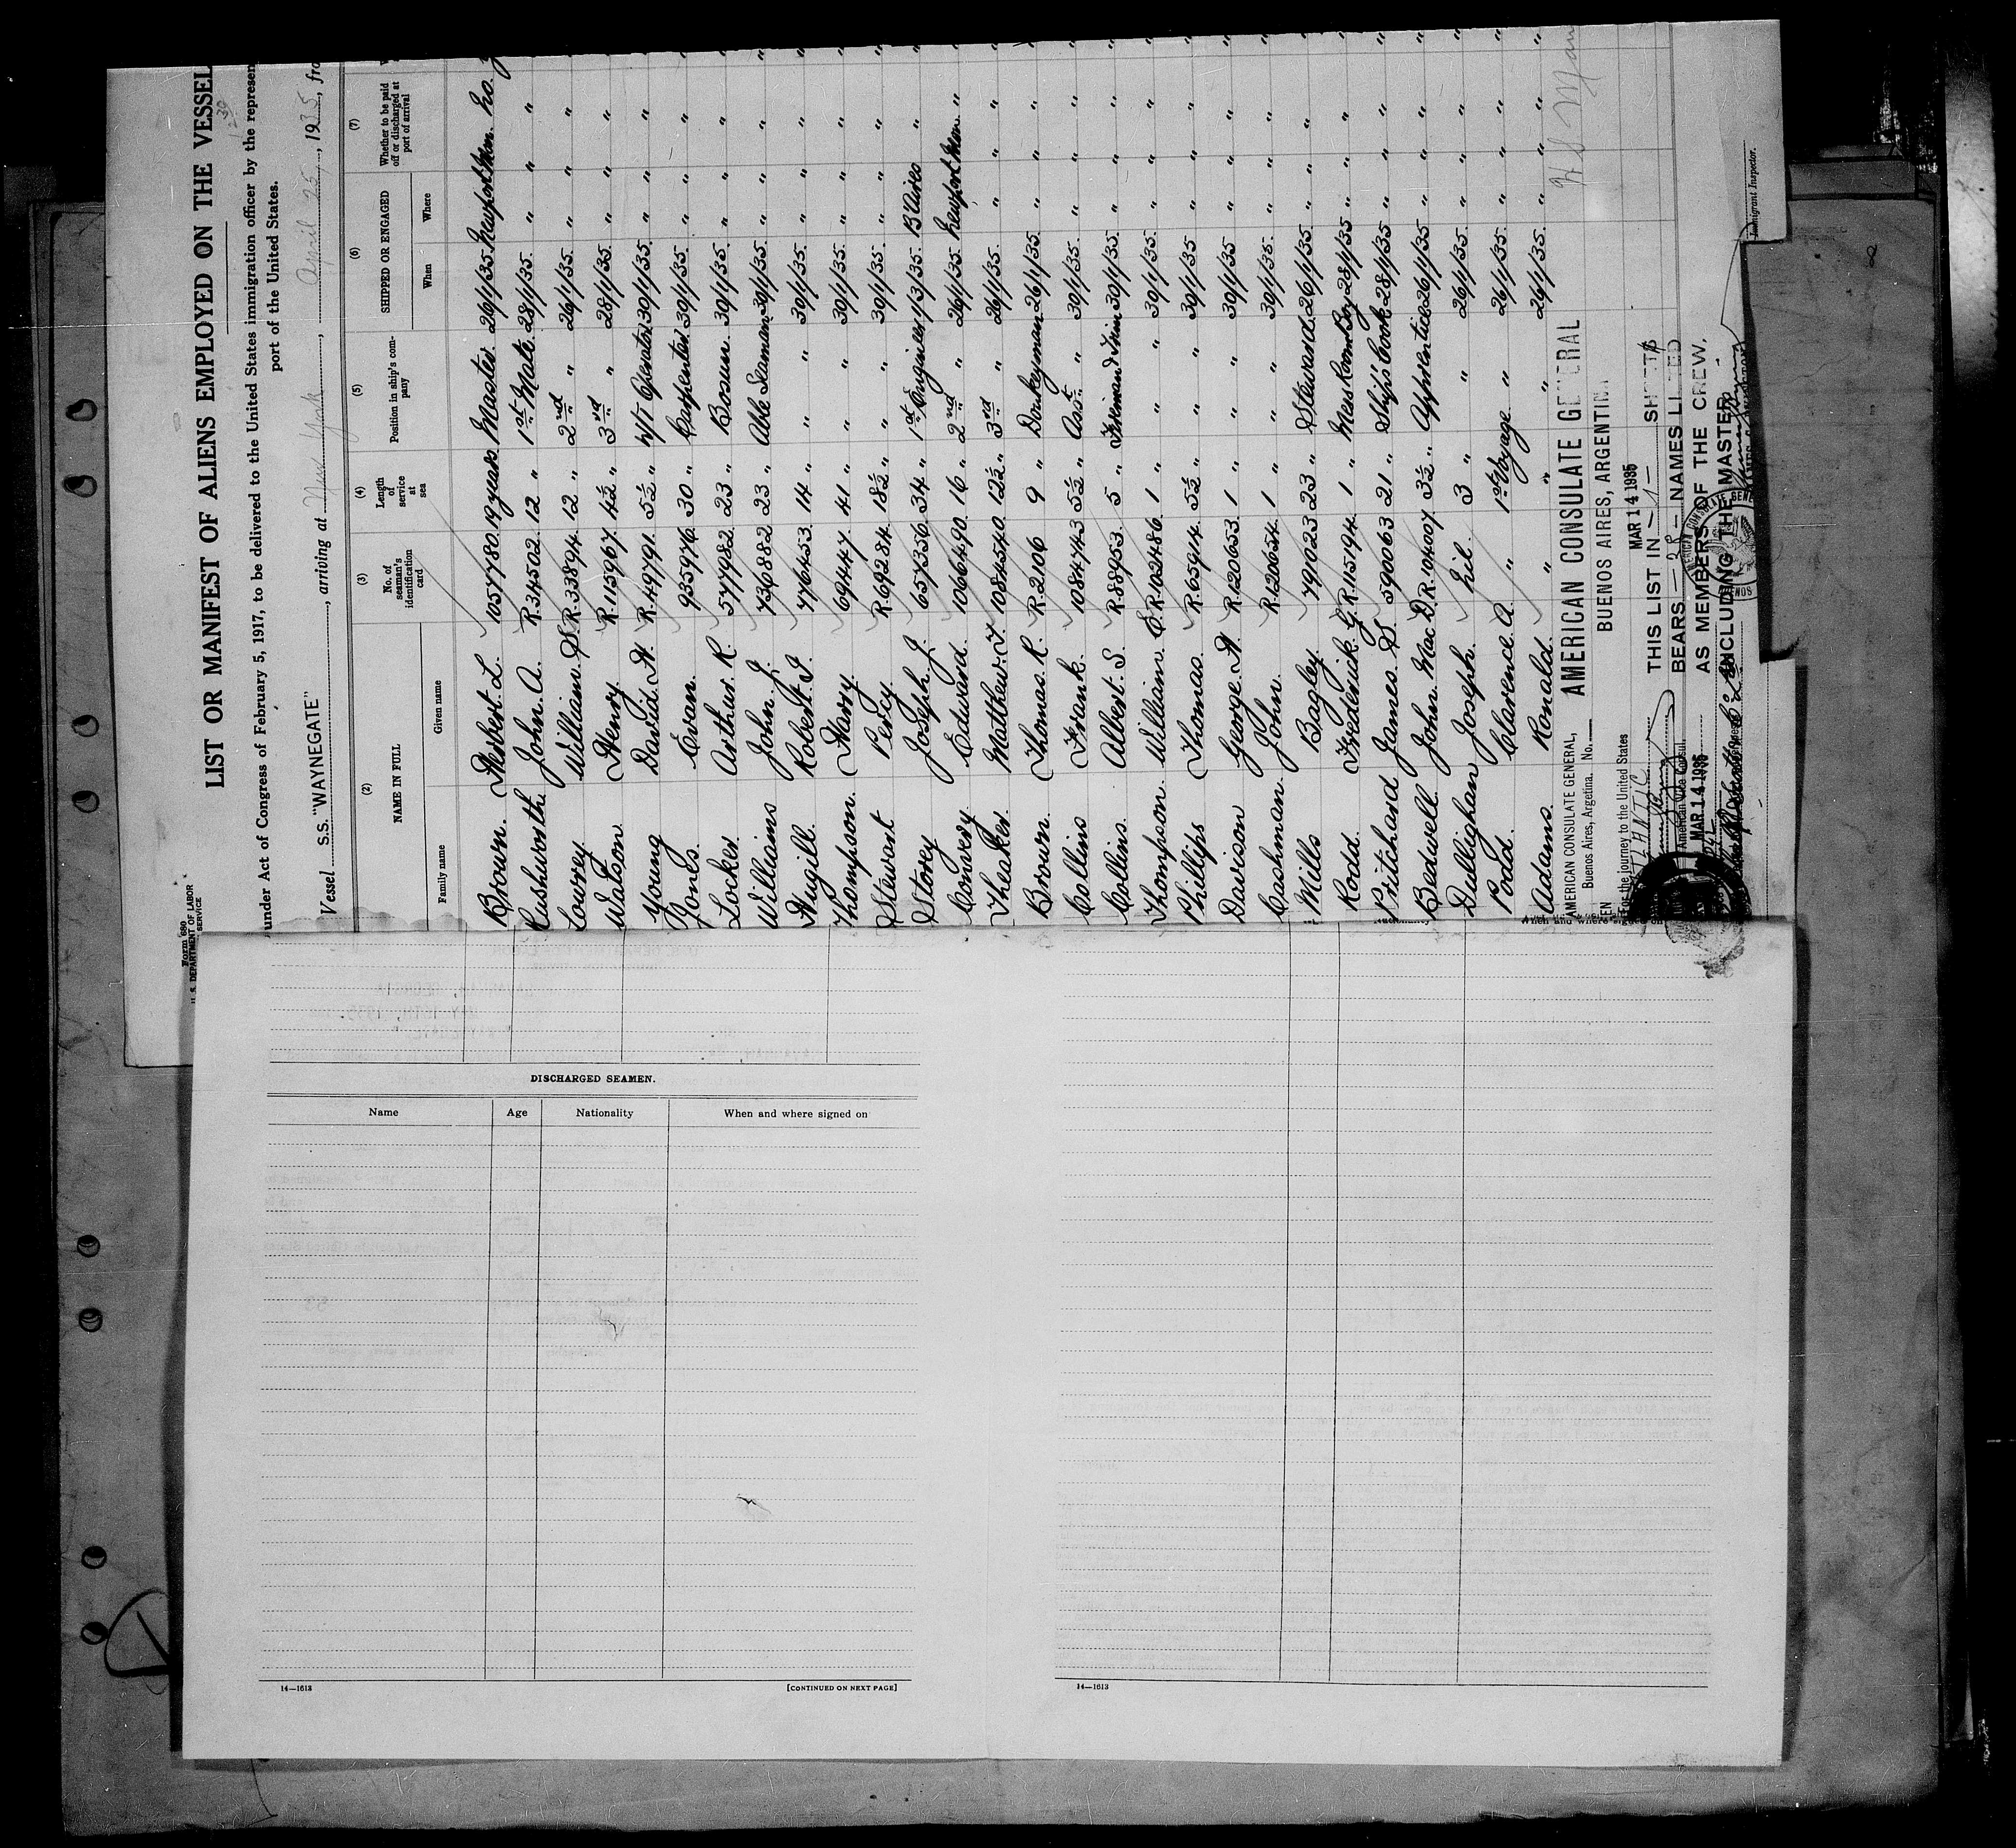 Form 686
U. S. DEPARTMENT OF LABOR
SERVICE
LIST OR MANIFEST OF ALIENS EMPLOYED ON THE VESSEL
under Act of Congress of February 5, 1917, to be delivered to the United States immigration officer by the represen
port of the United States.
Vessel S.S. "WAYNEGATE", arriving at New York, April 25, 1935, fro
(2) (3) (4) (5) (6) (7)
NAME IN FULL No. of seaman's identification card Length of service at sea Position in ship's company SHIPPED OR ENGAGED Whether to be paid off or discharged at port of arrival
Family name Given name When Where
Brown. Herbert. L. 1057780. 19 years. Master. 26/1/35. Newport Mon. No.
Cushworth. John. A. R.34502. 12 " 1st Mate. 28/1/35. " "
Lowrey William. S. R.33894. 12 " 2nd " 26/1/35. " "
Watson Henry. R.115967. 4½ " 3rd " 28/1/35. " "
Young David. H. R.49791. 5½ " W/T Operator. 30/1/35. " "
Jones. Evan. 935976. 30 " Carpenter. 30/1/35. " "
Locker. Arthur. R. 577982. 23 " Bosun. 30/1/35. " "
Williams John. J. 736882 23 " Able Seaman. 30/1/35. " "
Hugill. Robert. I. 776453. 14 " " 30/1/35. " "
Thompson. Harry. 69447. 41 " " 30/1/35. " "
Stewart Percy. R.69284. 18½ " " 30/1/35. " "
Storey Joseph. J. 657356. 34 " 1st Engineer. 1/3/35. B Aires "
Convery. Edward. 1066490. 16 " 2nd " 26/1/35. Newport Mon. "
Theaker. Matthew. T. 1084540. 12½ " 3rd " 26/1/35. " "
Brown. Thomas. R. R.2106 9 " Donkeyman 26/1/35. " "
Collins Frank. 1084743 5½ " Asst " 30/1/35. " "
Collins. Albert. S. R.88953. 5 " Fireman & Trim 30/1/35. " "
Thompson. William. E. R.102486. 1 " " 30/1/35. " "
Phillips Thomas. R.65914. 5½ " " 30/1/35 " "
Davison George. H. R.120653. 1 " " 30/1/35 " "
Cashman. John. R.120654. 1 " " 30/1/35. " "
Mills Bagley. 791023 23 " Steward. 26/1/35 " "
Rodd. Frederick. G. R.115194. 1 " Mess Room Boy 28/1/35 " "
Pritchard James. S. 590063 21 " Ships' Cook 28/1/35 " "
Bedwell. John. Mac D. R.104007. 3½ " Apprentice 26/1/35 " "
Dullighan Joseph. Nil. 3 " " 26/1/35. " "
Podd. Clarence A. " 1st Voyage " 26/1/35. " "
Adams. Ronald. " " " 26/1/35. " "
AMERICAN CONSULATE GENERAL,
Buenos Aires, Argetina. No.
EN
For the journey to the United States
American Vice Consul.
MAR 14 1935
AMERICAN CONSULATE GENERAL
BUENOS AIRES, ARGENTINA
MAR 14 1935
THIS LIST IN -1- SHEETS
BEARS -28- NAMES LISTED
AS MEMBERS OF THE CREW,
INCLUDING THE MASTER
AMERICAN CONSULATE GENERAL
Immigrant Inspector.
DISCHARGED SEAMEN.
Name Age Nationality When and where signed on
14—1613 [CONTINUED ON NEXT PAGE]
14—1613